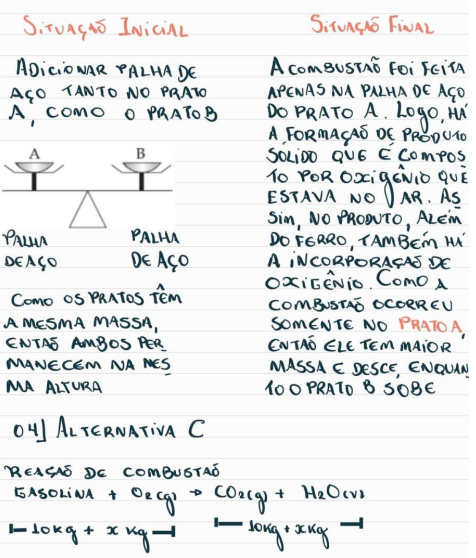 SITUAÇÃO INICIAL
ADICIONAR PALHA DE
AÇO TANTO NO PRATO
A, COMO O PRATO B
A B
PALHA PALHA
DE AÇO DE AÇO
COMO OS PRATOS TÊM
A MESMA MASSA,
ENTÃO AMBOS PER
MANECEM NA MES
MA ALTURA
SITUAÇÃO FINAL
A COMBUSTAÕ FOI FEITA
APENAS NA PALHA DE AÇO
DO PRATO A. LOGO, HÁ
A FORMAÇÃO DE PRODUTO
SÓLIDO QUE É COMPOS
TO POR OXIGÊNIO QUE
ESTAVA NO AR. AS
SIM, NO PRODUTO, ALÉM
DO FERRO, TAMBÉM HÁ
A INCORPORAÇÃO DE
OXIGÊNIO. COMO A
COMBUSTÃO OCORREU
SOMENTE NO PRATO A,
ENTÃO ELE TEM MAIOR
MASSA E DESCE, ENQUAN
TO O PRATO B SOBE
04] ALTERNATIVA C
REAÇÃO DE COMBUSTAÕ
GASOLINA + O2(g) → CO2(g) + H2O(v)
10kg + x kg 10kg + xkg